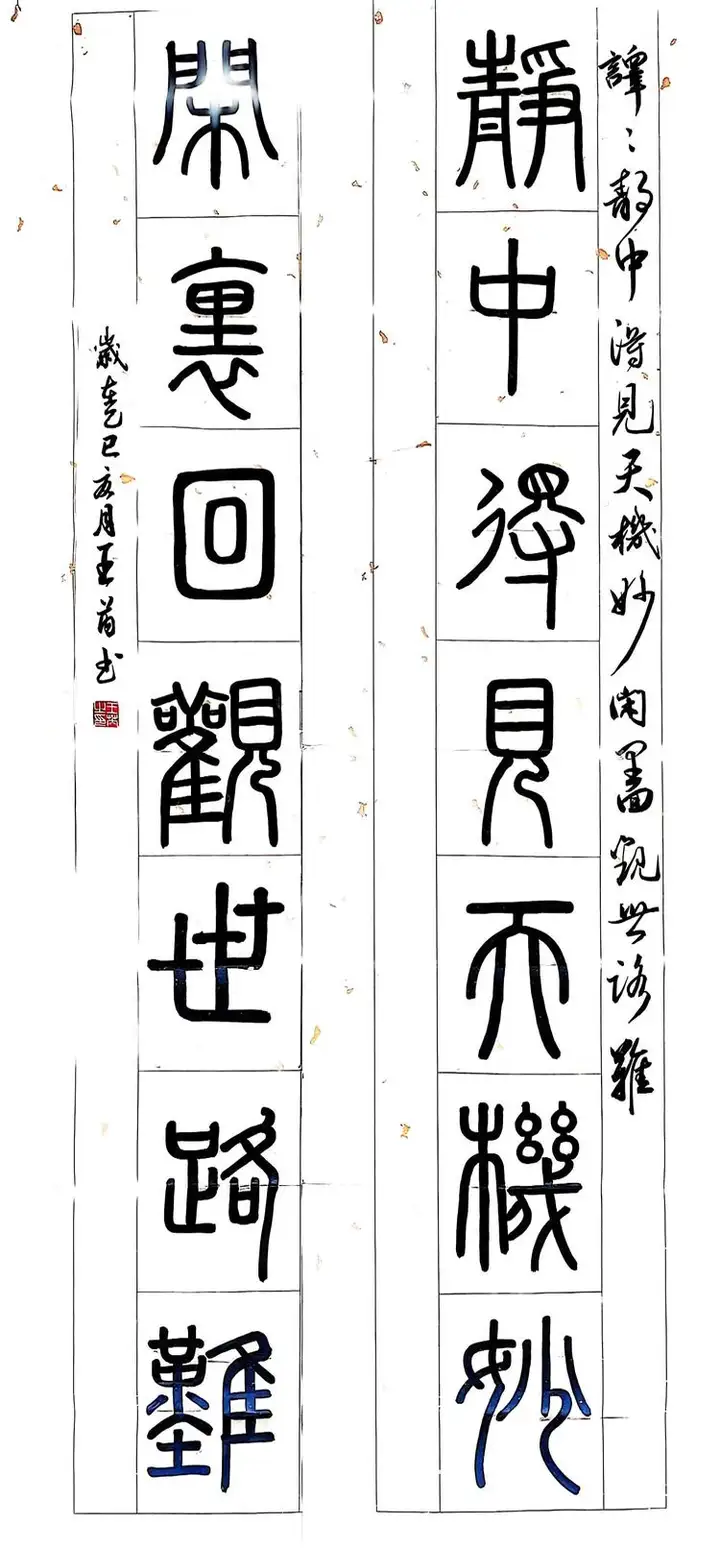 譯：静中得見天機妙闲裏回觀世路難
靜中得見天機妙
閑裏回觀世路難
歲在乙巳亥月王书